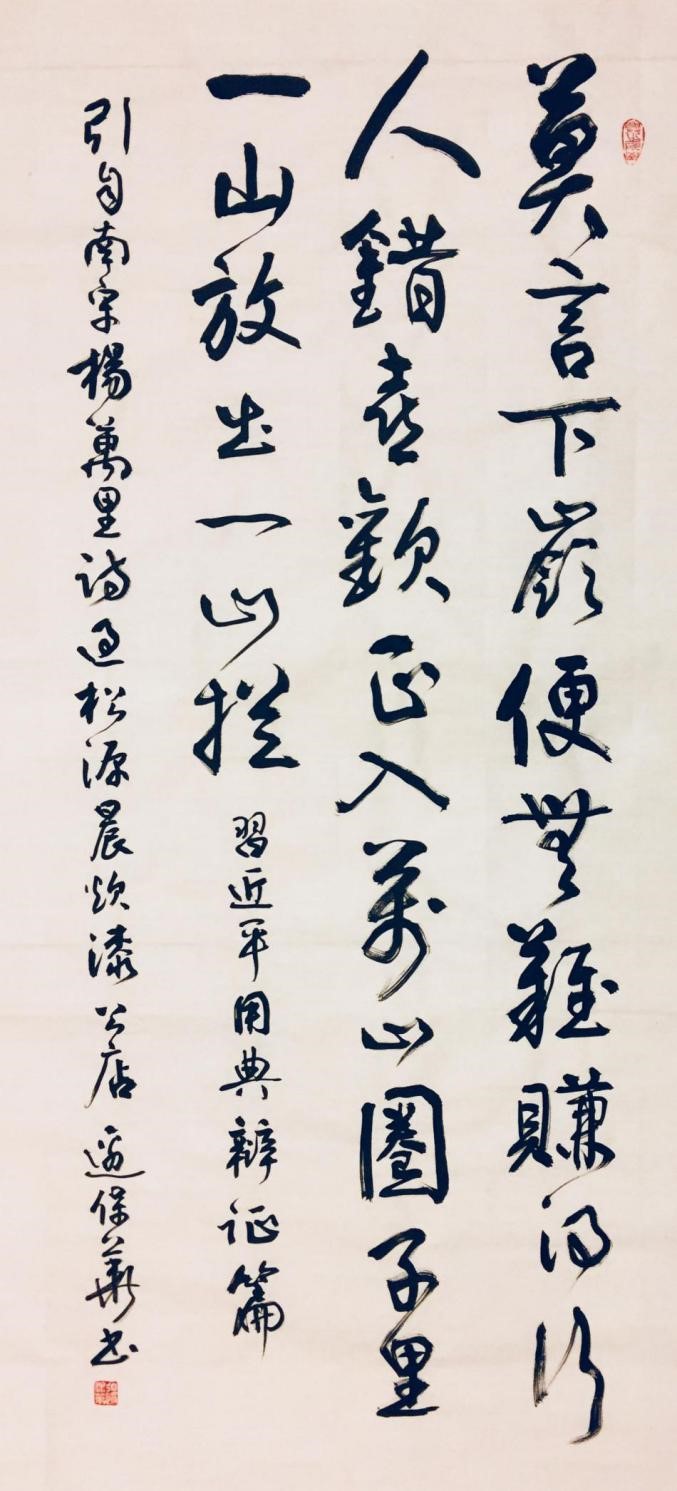 莫言下嶺便無難賺得行
人錯喜歡正入萬山圈子里
一山放出一山攔
習近平用典辯证篇
引自南宋楊萬里诗过松源晨炊漆公店 邊保華书